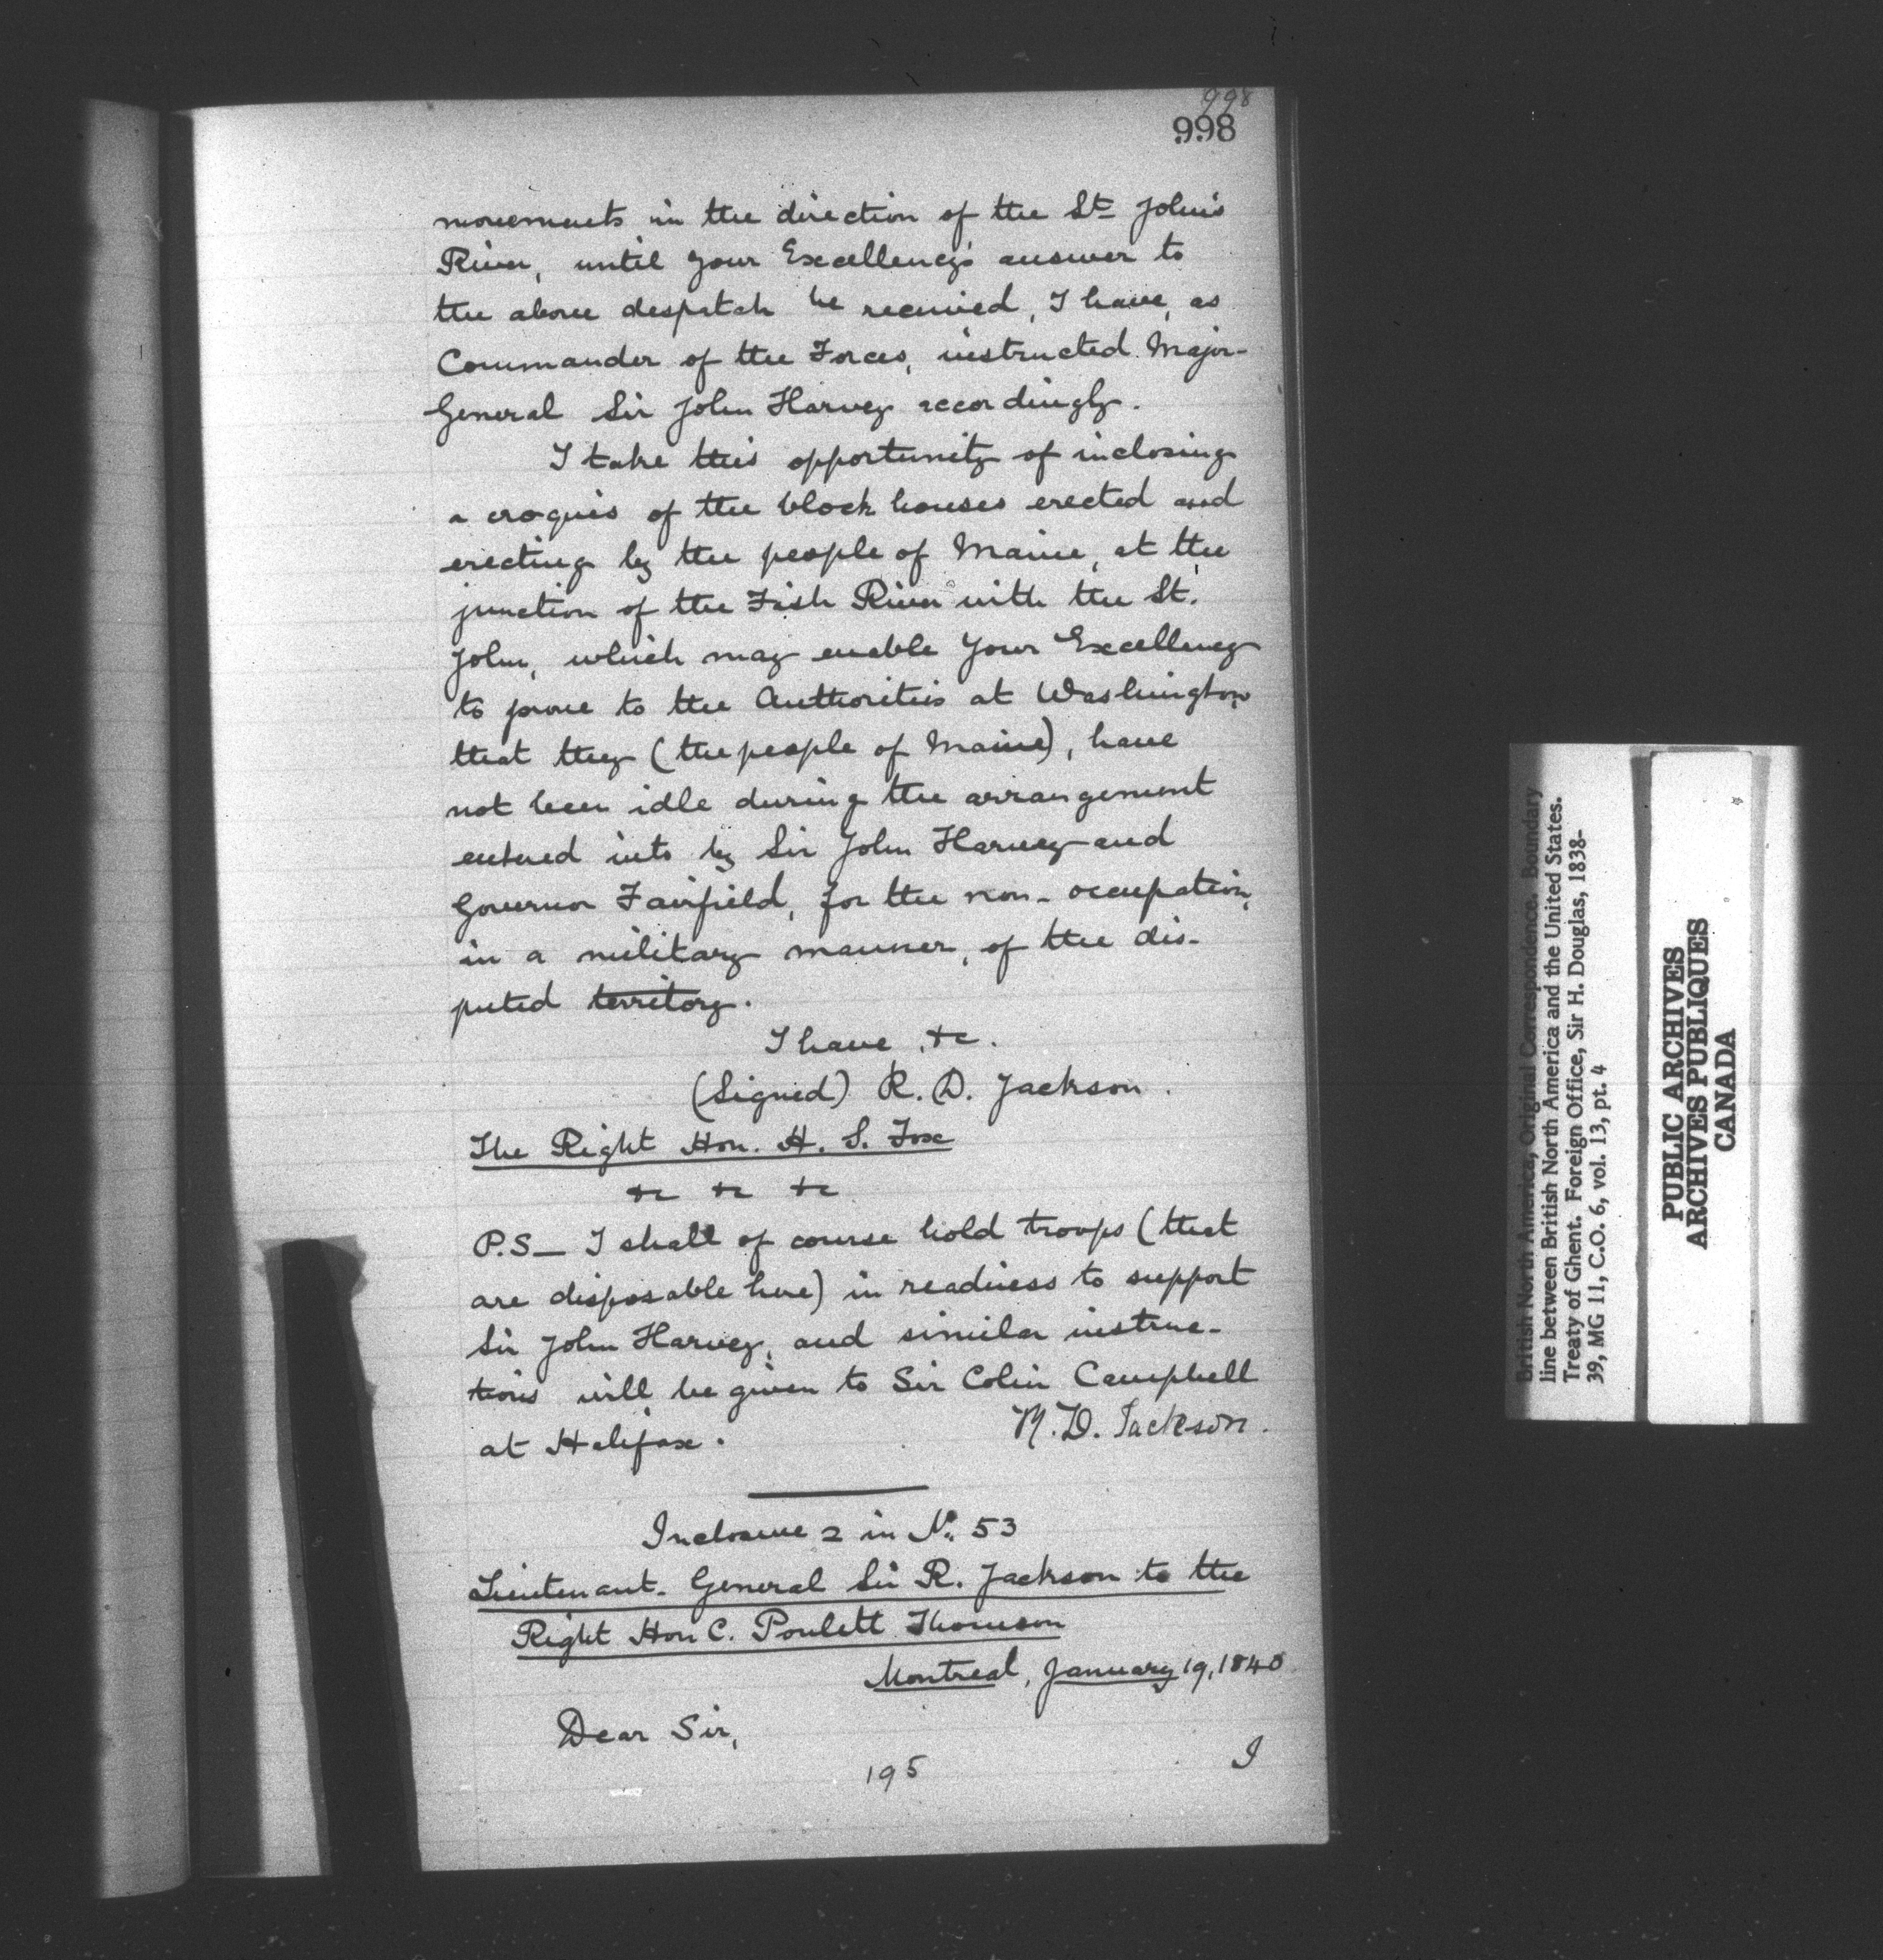 998
998
movements in the direction of the St. John's
River, until your Excellency's answer to
the above despatch be received, I have, as
Commander of the Forces, instructed Major-
General Sir John Harvey accordingly.
I take this opportunity of inclosing
a croquis of the block houses erected and
erecting by the people of Maine, at the
junction of the Fish River with the St.
John, which may enable Your Excellency
to prove to the Authorities at Washington,
that they (the people of Maine), have
not been idle during the arrangement
entered into by Sir John Harvey and
Governor Fairfield, for the non-occupation,
in a military manner, of the dis-
puted territory.
I have, &c.
(Signed) R. D. Jackson.
The Right Hon. H. S. Fox
&c &c &c
P.S— I shall of course hold troops (that
are disposable here) in readiness to support
Sir John Harvey, and similar instruc-
tions will be given to Sir Colin Campbell
at Halifax.
R. D. Jackson.
Inclosure 2 in No. 53
Lieutenant-General Sir R. Jackson to the
Right Hon C. Poulett Thomson
Montreal, January 19, 1840
Dear Sir,
I
195
British North America, Original Correspondence. Boundary
line between British North America and the United States.
Treaty of Ghent. Foreign Office, Sir H. Douglas, 1838-
39, MG 11, C.O. 6, vol. 13, pt. 4
PUBLIC ARCHIVES
ARCHIVES PUBLIQUES
CANADA